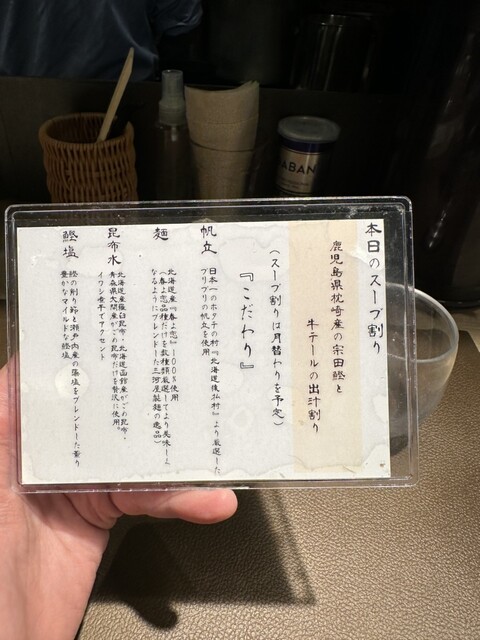 本日のスープ割り
鹿児島県枕崎産の宗田鰹と
牛テールの出汁割り
(スープ割りは月替わりを予定)
『こだわり』
帆立
日本一のホタテの村『北海道猿払村』より厳選した
プリプリの帆立を使用
麺
北海道産『春よ恋』100%使用
(春よ恋品種だけを数種類厳選してより美味しく
なるようにブレンドした三河屋製麺の逸品)
昆布水
北海道産羅臼昆布・北海道函館産がごめ昆布・
青森県大間産がごめ昆布だけを贅沢に使用。
イワシ煮干でアクセント
鰹塩
鰹の削り節と瀬戸内産の藻塩をブレンドした香り
豊かなマイルドな鰹塩
ABAN